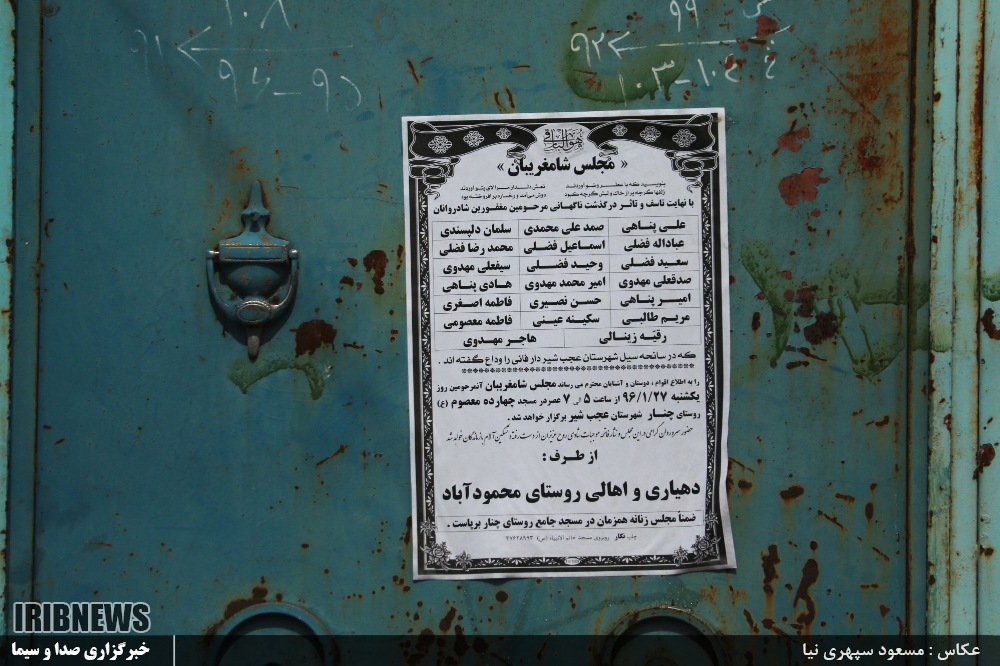 ۱۰۸
۹۹
۹۱
۹۲
۹۴-۹۵
۱۰۳-۱۰۲
هوالباقی
« مجلس شامغریبان »
با نهایت تاسف و تاثر درگذشت ناگهانی مرحومین مغفورین شادروانان
علی پناهی صمد علی محمدی سلمان دلپسندی
عباداله فضلی اسماعیل فضلی محمد رضا فضلی
سعید فضلی وحید فضلی سیفعلی مهدوی
صدقعلی مهدوی امیر محمد مهدوی هادی پناهی
امیر پناهی حسن نصیری فاطمه اصغری
مریم طالبی سکینه عینی فاطمه معصومی
رقیه زینالی هاجر مهدوی
که در سانحه سیل شهرستان عجب شیر دار فانی را وداع گفته اند .
را به اطلاع اقوام ، دوستان و آشنایان محترم می رساند مجلس شامغریبان آنمرحومین روز
یکشنبه ۹۶/۱/۲۷ از ساعت ۵ الی ۷ عصر در مسجد چهارده معصوم (ع)
روستای چنار شهرستان عجب شیر برگزار خواهد شد .
حضور سروران گرامی در این مجلس و نثار فاتحه موجبات شادی روح عزیزان از دست رفته و تسکین آلام بازماندگان خواهد شد
از طرف :
دهیاری و اهالی روستای محمودآباد
ضمناً مجلس زنانه همزمان در مسجد جامع روستای چنار برپاست .
چاپ نگار روبروی مسجد خاتم الانبیاء (ص) ۳۷۶۲۸۹۹۳
IRIBNEWS
خبرگزاری صدا و سیما
عکاس : مسعود سپهری نیا